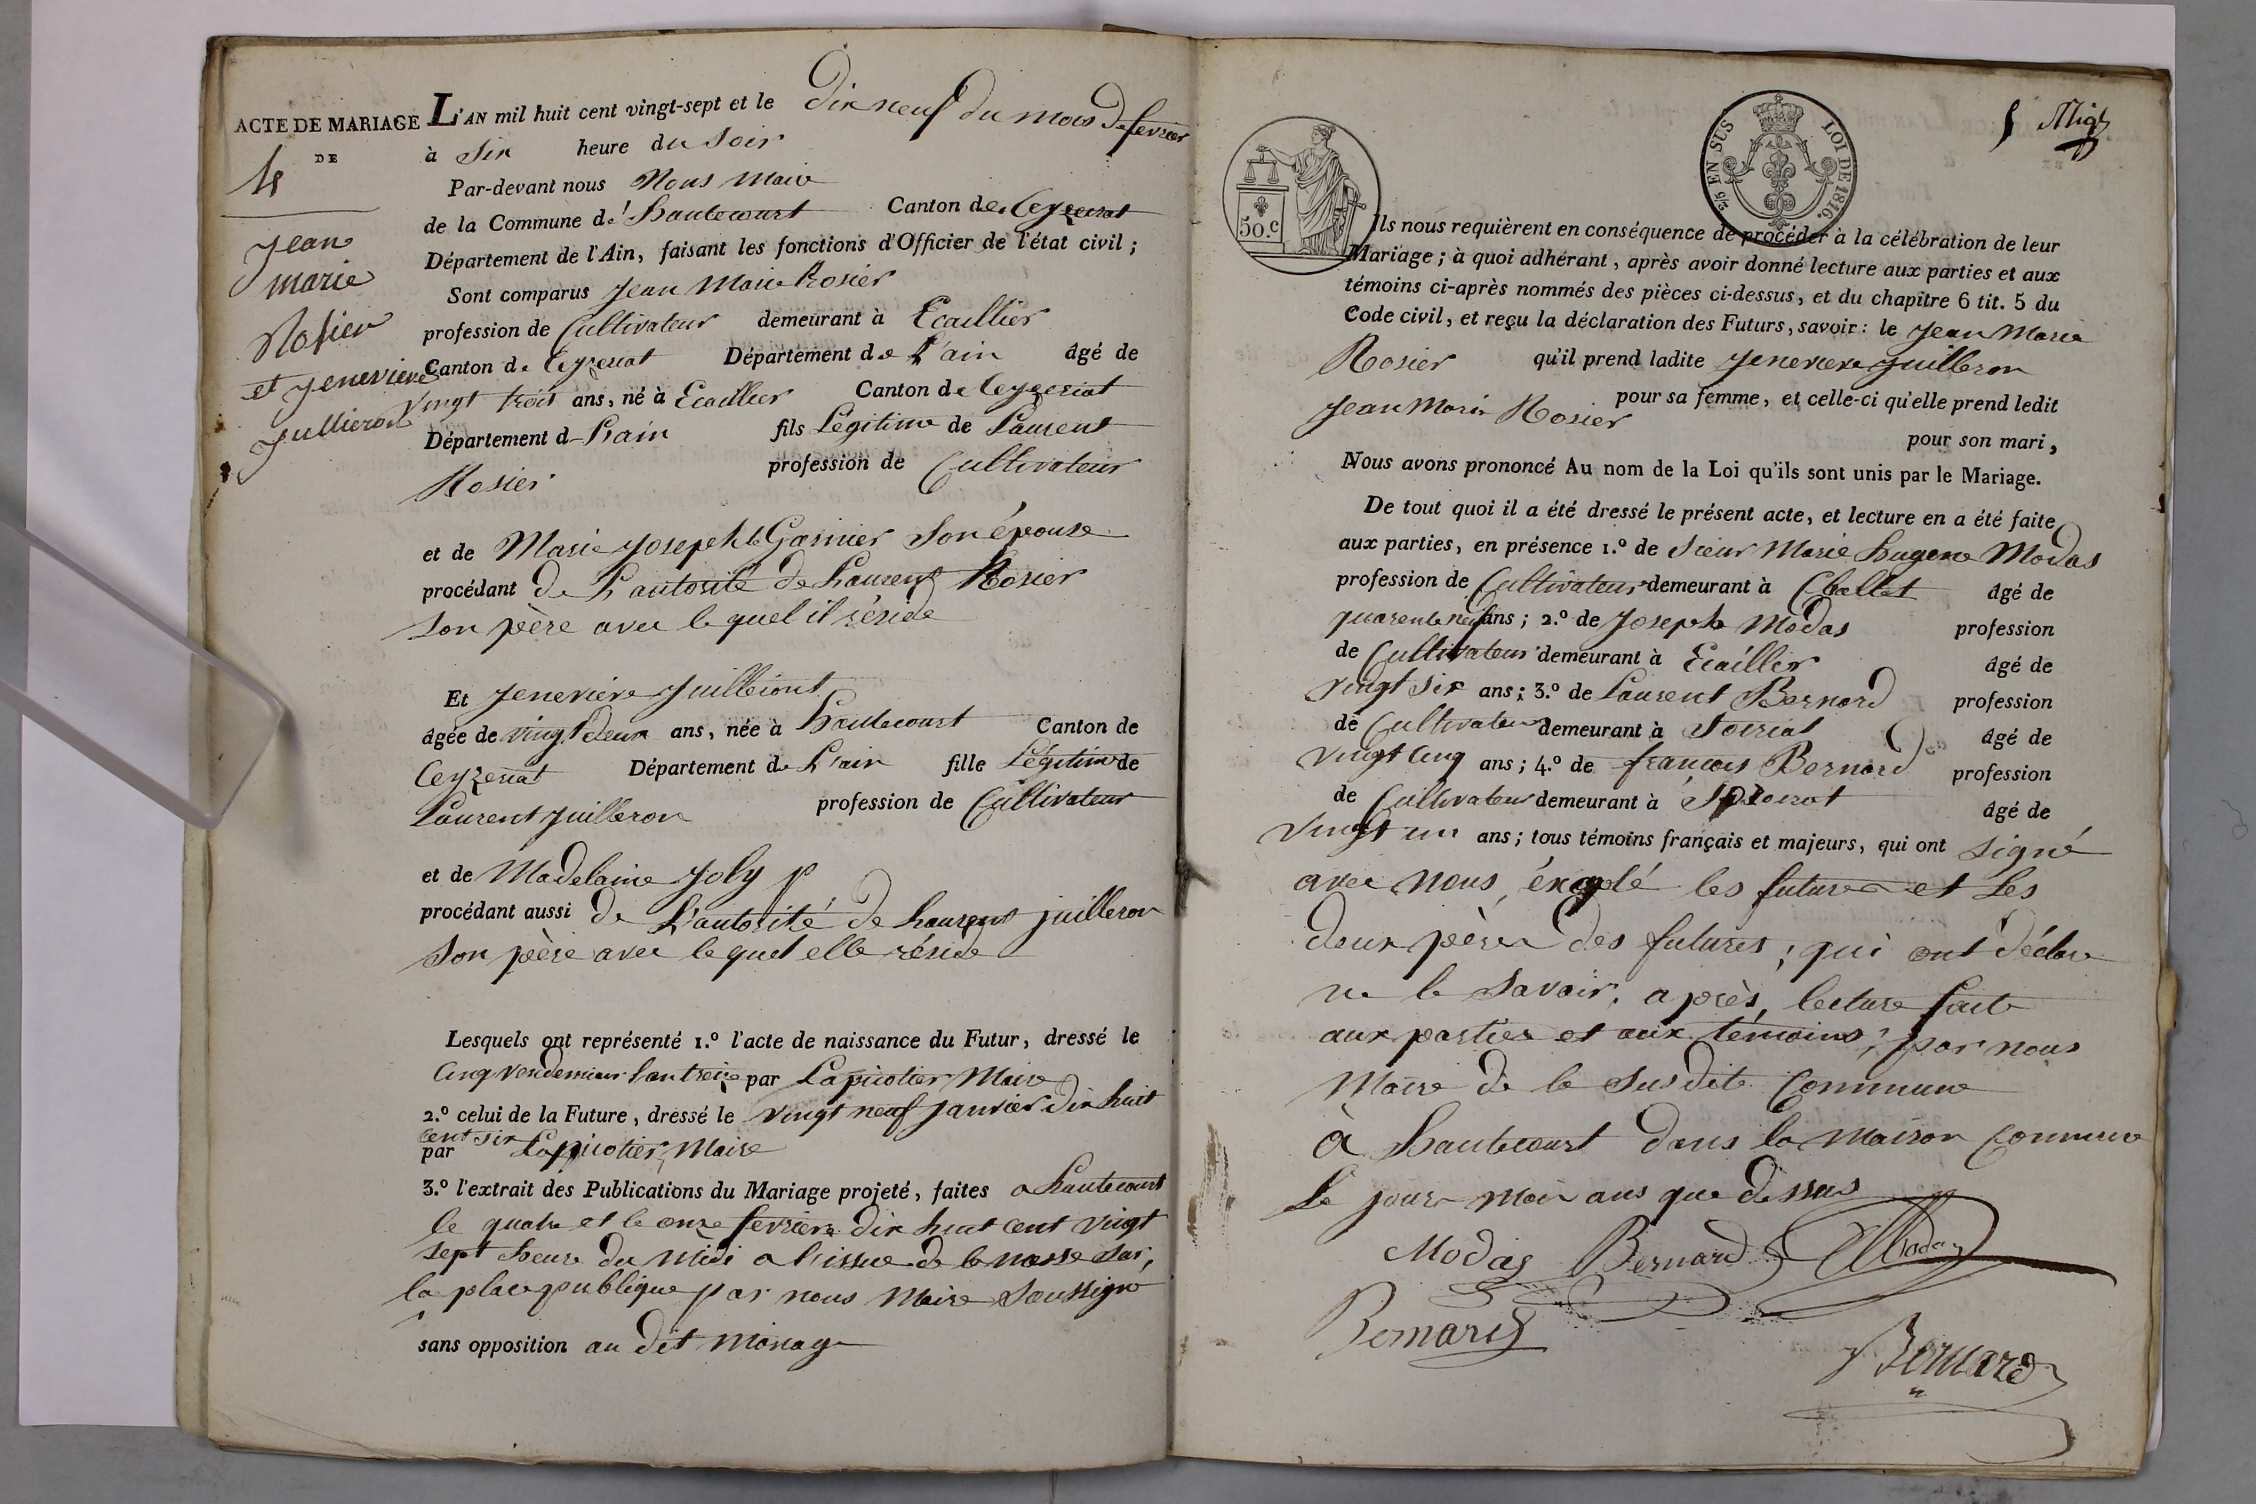 ACTE DE MARIAGE
DE
4
Jean
marie
Rosier
et Jenevieve
Jullieron
L'AN mil huit cent vingt-sept et le Dix neuf du mois De fevrier
à Six heure du Soir
Par-devant nous Nous Maire
de la Commune d'hautecourt Canton de Ceyzeriat
Département de l'Ain, faisant les fonctions d'Officier de l'état civil ;
Sont comparus Jean Marie Rosier
profession de Cultivateur demeurant à Ecaillier
Canton de Ceyzeriat Département de L'ain âgé de
vingt trois ans, né à Ecaillier Canton de Ceyzeriat
Département d Lain fils Légitime de Laurent
Rosier profession de Cultivateur
et de Marie Josephte Garnier Son épouse
procédant de L'autorité de Laurent Rosier
Son père avec le quel il réside
Et Jenevieve Juilleront
âgée de vingt deux ans, née à hautecourt Canton de
Ceyzeriat Département de L'ain fille Légitime de
Laurent Juilleron profession de Cultivateur
et de Madelaine Joly
procédant aussi de L'autorité de Laurent juilleron
Son père avec le quel elle réside
Lesquels ont représenté 1.° l'acte de naissance du Futur, dressé le
Cinq vendemiair l'an treize par Lapicotier Maire
2.° celui de la Future, dressé le vingt neuf janvier dix huit
cent six
par Lapicotier Maire
3.° l'extrait des Publications du Mariage projeté, faites a hautecourt
le quatre et le onze fevrier dix huit cent vingt
sept heure du Midi a l'issue de la messe sur,
la place publique par nous Maire Soussigné
sans opposition au dit Mariage
5
50.C
2/5 EN SUS LOI DE 1816.
Ils nous requièrent en conséquence de procéder à la célébration de leur
Mariage ; à quoi adhérant, après avoir donné lecture aux parties et aux
témoins ci-après nommés des pièces ci-dessus, et du chapitre 6 tit. 5 du
Code civil, et reçu la déclaration des Futurs, savoir : le Jean Marie
Rosier qu'il prend ladite Jenevieve Juilleron
pour sa femme, et celle-ci qu'elle prend ledit
Jean Marie Rosier pour son mari,
Nous avons prononcé Au nom de la Loi qu'ils sont unis par le Mariage.
De tout quoi il a été dressé le présent acte, et lecture en a été faite
aux parties, en présence 1.° de Sieur Marie hugene Modas
profession de Cultivateur demeurant à Challet âgé de
quarente neuf ans ; 2.° de Joseph Modas profession
de Cultivateur demeurant à Ecaillier âgé de
vingt six ans ; 3.° de Laurent Bernard profession
de Cultivateur demeurant à âgé de
vingt cinq ans ; 4.° de françois Bernard profession
de Cultivateur demeurant à âgé de
vingt un ans ; tous témoins français et majeurs, qui ont signé
avec nous, les futures et Les
deux pères des futures ; qui ont déclare
ne le Savoir. après, lecture faite
aux parties et aux témoins ; par nous
Maire de la Susdite Commune
à hautecourt dans la Maison Commune
Le jour Moi ans que dessus
Modas Bernard Modas
Bernard
Bernard